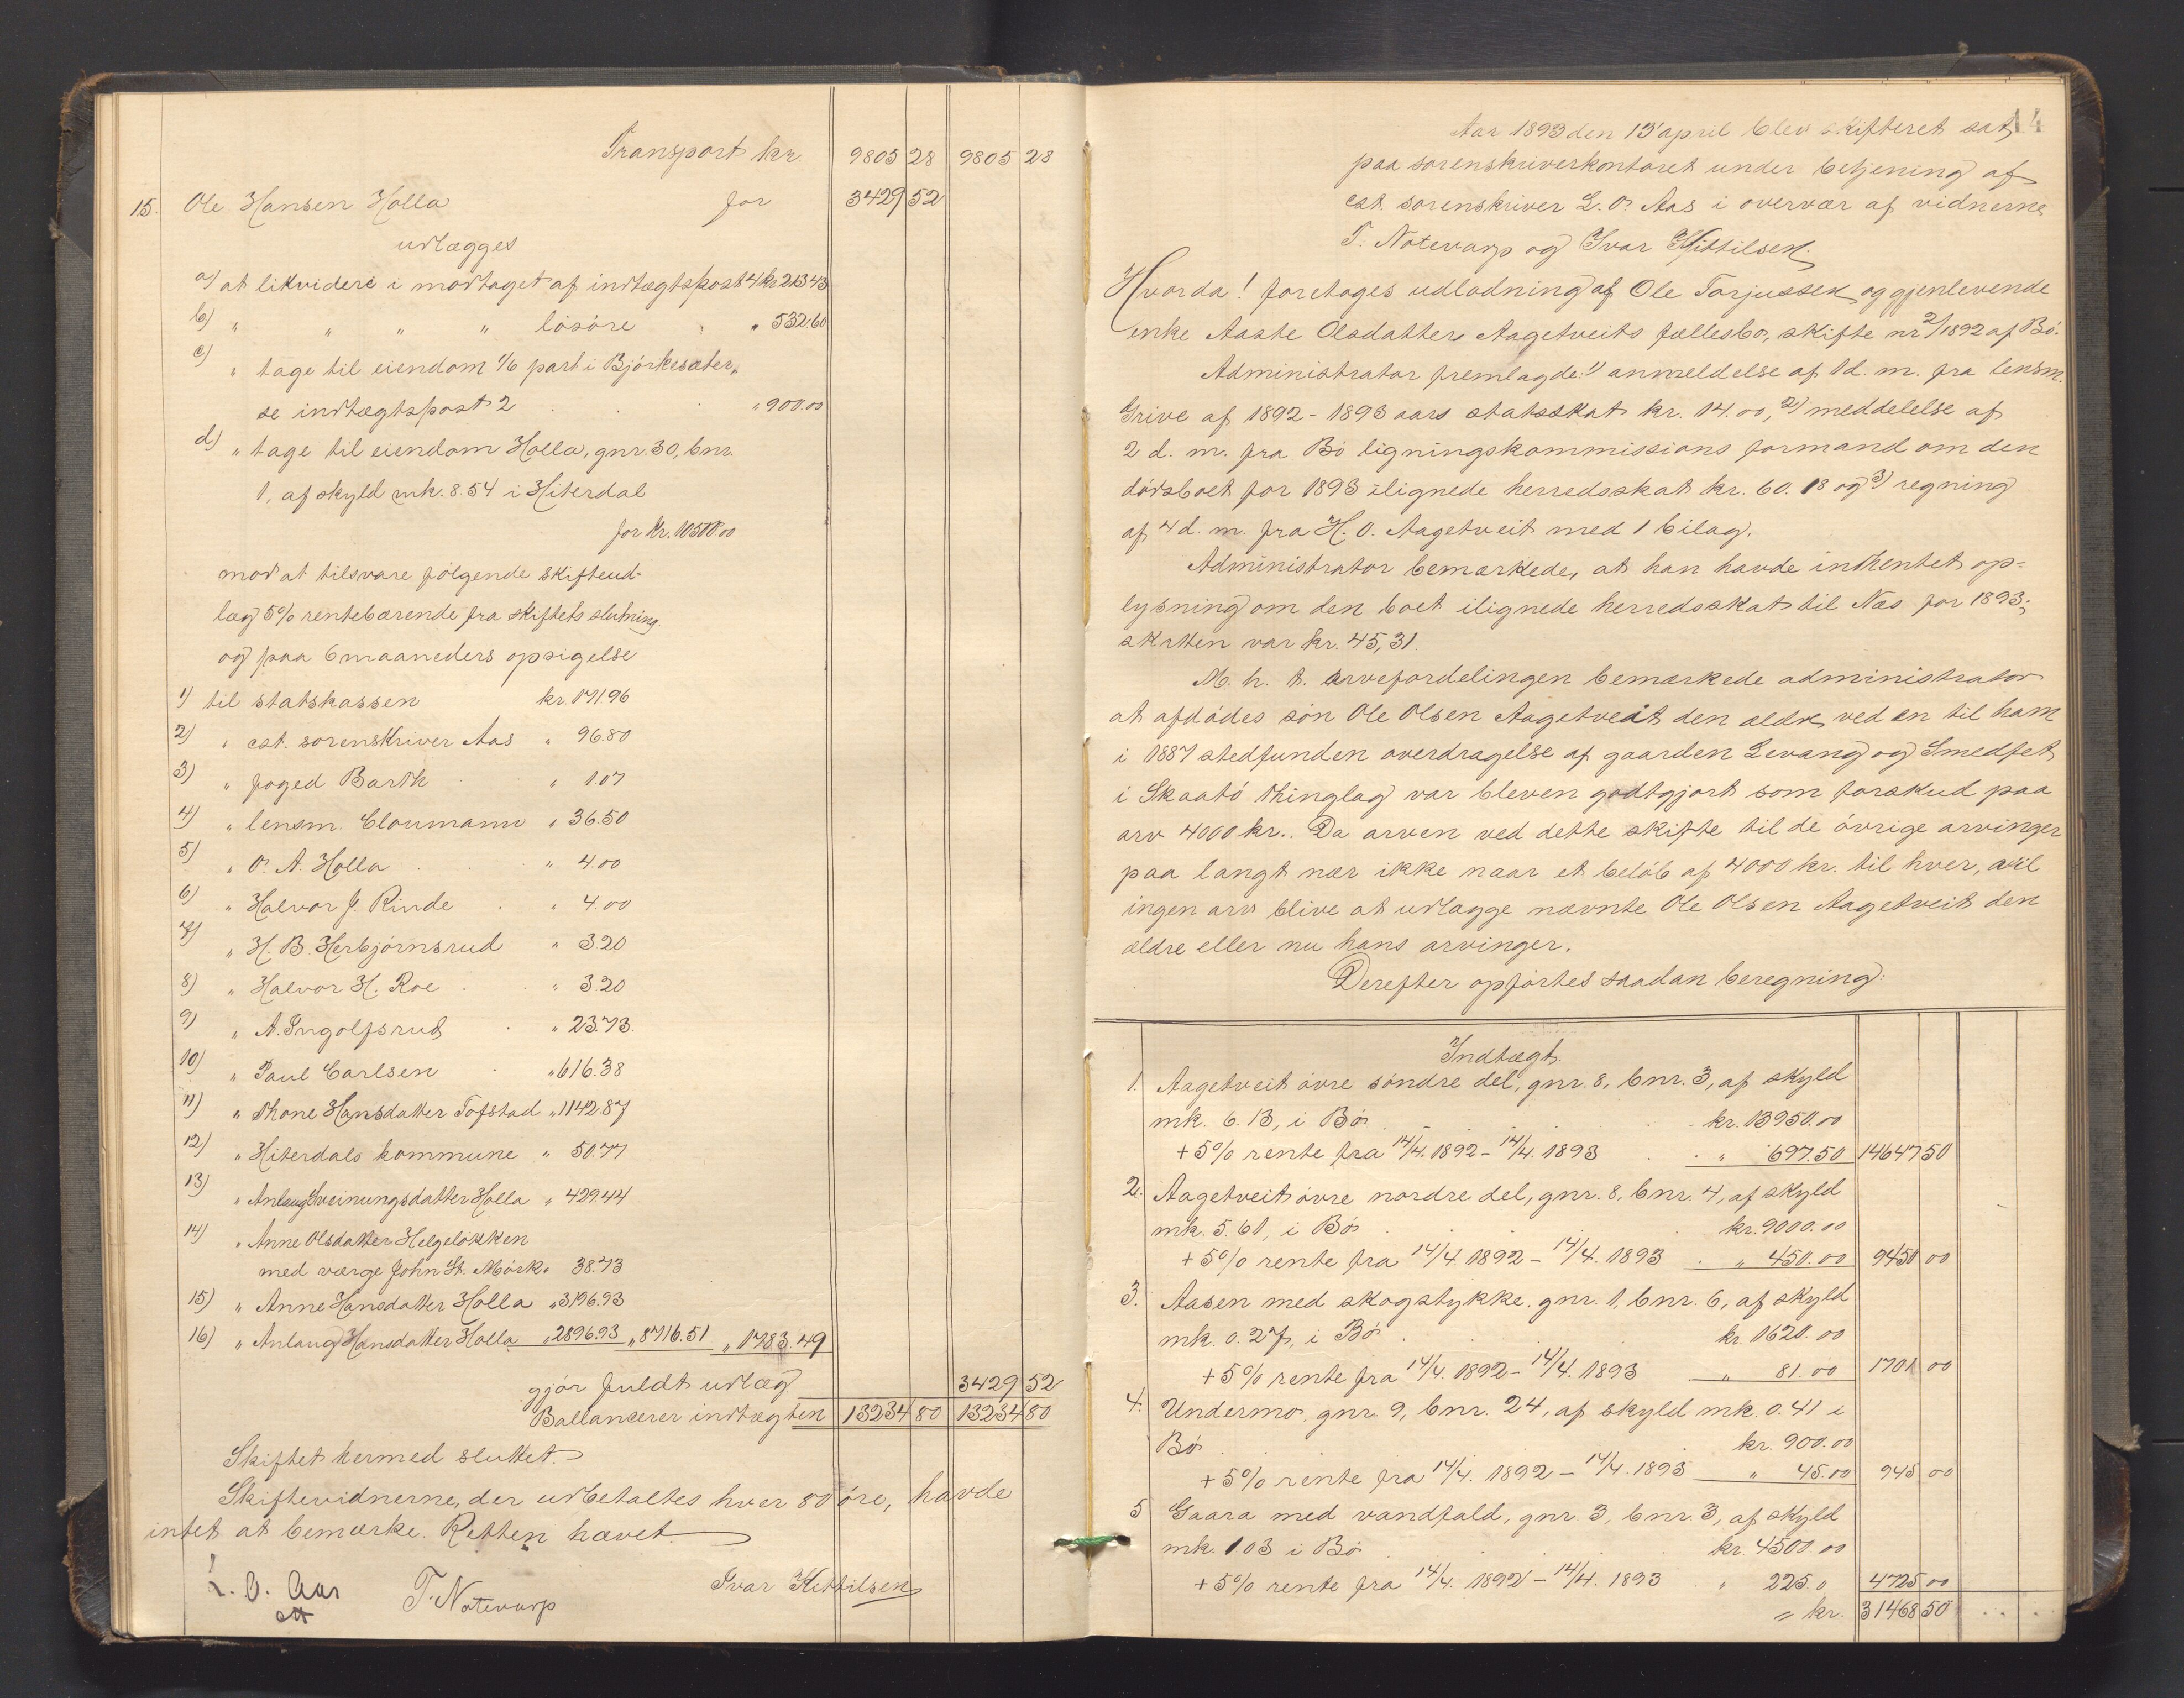 Transport kr. 9805 28 9805 28
15. Ole Hansen Holla for 3429 52
udlægges
a) at likvidere i modtaget af indtægtspost 4 kr. 213 43
b) " " " " løsøre " 532.60
c) " tage til eiendom 1/6 part i Bjørkesæter,
se indtægtspost 2 " 900.00
d) " tage til eiendom Holla, gnr. 30, bnr.
1, af skyld mk. 8.54 i Hiterdal
for kr. 10500.00
mod at tilsvare følgende skifteud-
læg 5% rentebærende fra skiftets slutning
og paa 6 maaneders opsigelse
1) til statskassen kr. 171.96
2) " cst. sorenskriver Aas " 96.80
3) " foged Barth " 1.07
4) " lensm. Cloumann " 36.50
5) " O. A. Holla " 4.00
6) " Halvor J. Rinde " 4.00
7) " H. B. Herbjørnsrud " 3.20
8) " Halvor H. Roe " 3.20
9) " A. Ingolfsrud " 23.73
10) " Paul Carlsen " 616.38
11) " Thone Hansdatter Tofstad " 1142.87
12) " Hiterdals kommune " 50.77
13) " Anlaug Sveinungsdatter Holla " 429.44
14) " Anne Olsdatter Helgeløkken
med værge John St. Mørk " 38.73
15) " Anne Hansdatter Holla " 3196.93
16) " Anlaug Hansdatter Holla " 2896.93 " 8716.51 " 1783.49
gjør fuldt udlæg 3429 52
Ballancerer indtægten 13234 80 13234 80
Skiftet hermed sluttet.
Skiftevidnerne, der udbetaltes hver 80 øre, havde
intet at bemærke. Retten hævet.
L. O. Aas
cst
T. Notevarp
Ivar Kittilsen
14
Aar 1893 den 13 april blev skifteret sat
paa sorenskriverkontoret under betjening af
cst. sorenskriver L. O. Aas i overvær af vidnerne
T. Notevarp og Ivar Kittilsen.
Hvorda! foretoges udlodning af Ole Torjussen og gjenlevende
enke Aaste Olsdatter Aagetveits fællesbo, skifte nr 2/1892 af Bø.
Administrator fremlagde: 1) anmeldelse af 1 d. m. fra lensm.
Grive af 1892-1893 aars statsskat kr. 14.00, 2) meddelelse af
2 d. m. fra Bø ligningskommissions formand om den
dødsboet for 1893 ilignede herredsskat kr. 60.18 og 3) regning
af 4 d. m. fra H. O. Aagetveit med 1 bilag.
Administrator bemærkede, at han havde indhentet op-
lysning om den boet ilignede herredsskat til Næs for 1893;
skatten var kr. 45,31.
M. h. t. arvefordelingen bemærkede administrator
at afdødes søn Ole Olsen Aagetveit den ældre ved en til ham
i 1887 stedfunden overdragelse af gaarden Levang og Smedfet
i Skaatø thinglag var bleven godtgjort som forskud paa
arv 4000 kr.. Da arven ved dette skifte til de øvrige arvinger
paa langt nær ikke naar et beløb af 4000 kr. til hver, vil
ingen arv blive at udlægge nævnte Ole Olsen Aagetveit den
ældre eller nu hans arvinger.
Derefter opførtes saadan beregning:
Indtægt.
1. Aagetveit øvre søndre del, gnr. 8, bnr. 3, af skyld
mk. 6.13, i Bø kr. 13950.00
+ 5% rente fra 14/4. 1892 - 14/4. 1893 " 697.50 14647 50
2. Aagetveit øvre nordre del, gnr. 8, bnr. 4, af skyld
mk. 5.61, i Bø kr. 9000.00
+ 5% rente fra 14/4. 1892 - 14/4. 1893 " 450.00 9450 00
3. Aasen med skogstykke, gnr. 1, bnr. 6, af skyld
mk. 0.27, i Bø kr. 1620.00
+ 5% rente fra 14/4. 1892 - 14/4. 1893 " 81.00 1701 00
4. Undermo, gnr. 9, bnr. 24, af skyld mk. 0.41 i
Bø kr. 900.00
+ 5% rente fra 14/4. 1892 - 14/4. 1893 " 45.00 945 00
5 Gaara med vandfald, gnr. 3, bnr. 3, af skyld
mk. 1.03 i Bø kr. 4500.00
+ 5% rente fra 14/4. 1892 - 14/4. 1893 " 225.0 4725 00
= kr. 31468 50